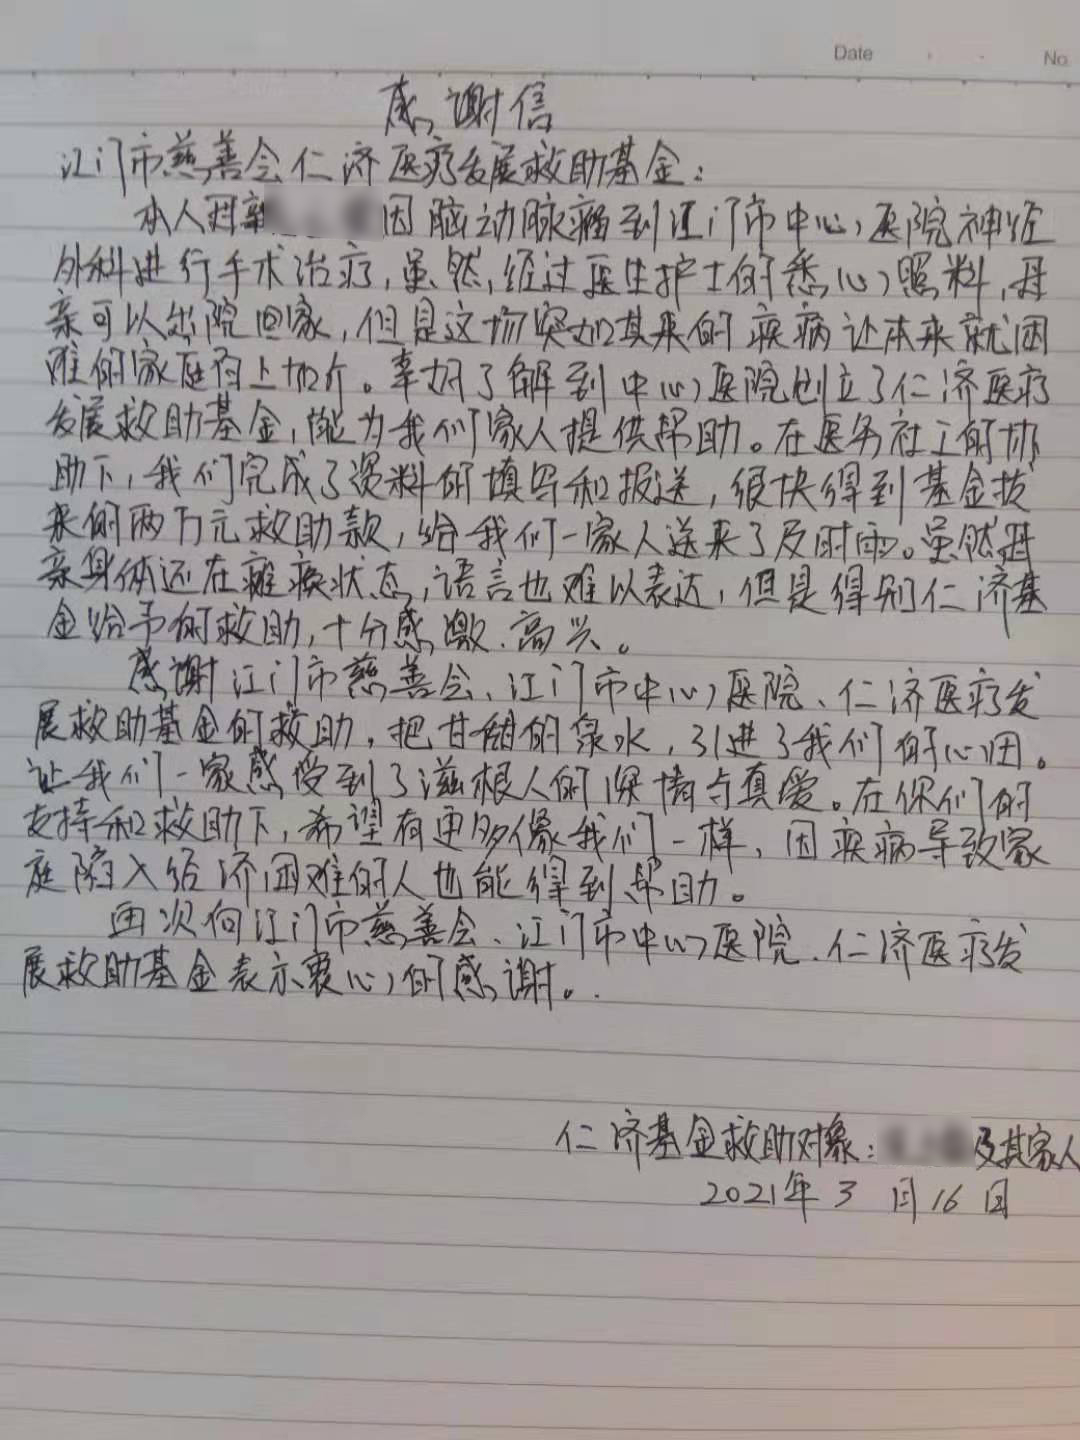 Date
No
感谢信
江门市慈善会仁济医疗发展救助基金：
本人母亲因脑动脉瘤到江门市中心医院神经
外科进行手术治疗，虽然，经过医生护士的悉心照料，母
亲可以出院回家，但是这场突如其来的疾病让本来就困
难的家庭雪上加介。幸好了解到中心医院创立了仁济医疗
发展救助基金，能为我们家人提供帮助。在医务社工的协
助下，我们完成了资料的填写和报送，很快得到基金拔
来的两万元救助款，给我们一家人送来了及时雨。虽然母
亲身体还在瘫痪状态，语言也难以表达，但是得到仁济基
金给予的救助，十分感激、高兴。
感谢江门市慈善会、江门市中心医院、仁济医疗发
展救助基金的救助，把甘甜的泉水，引进了我们的心田。
让我们一家感受到了滋根人的深情与真爱。在你们的
支持和救助下，希望有更多像我们一样，因疾病导致家
庭陷入经济困难的人也能得到帮助。
再次向江门市慈善会、江门市中心医院、仁济医疗发
展救助基金表示衷心的感谢。
仁济基金救助对象：及其家人
2021年3月16日